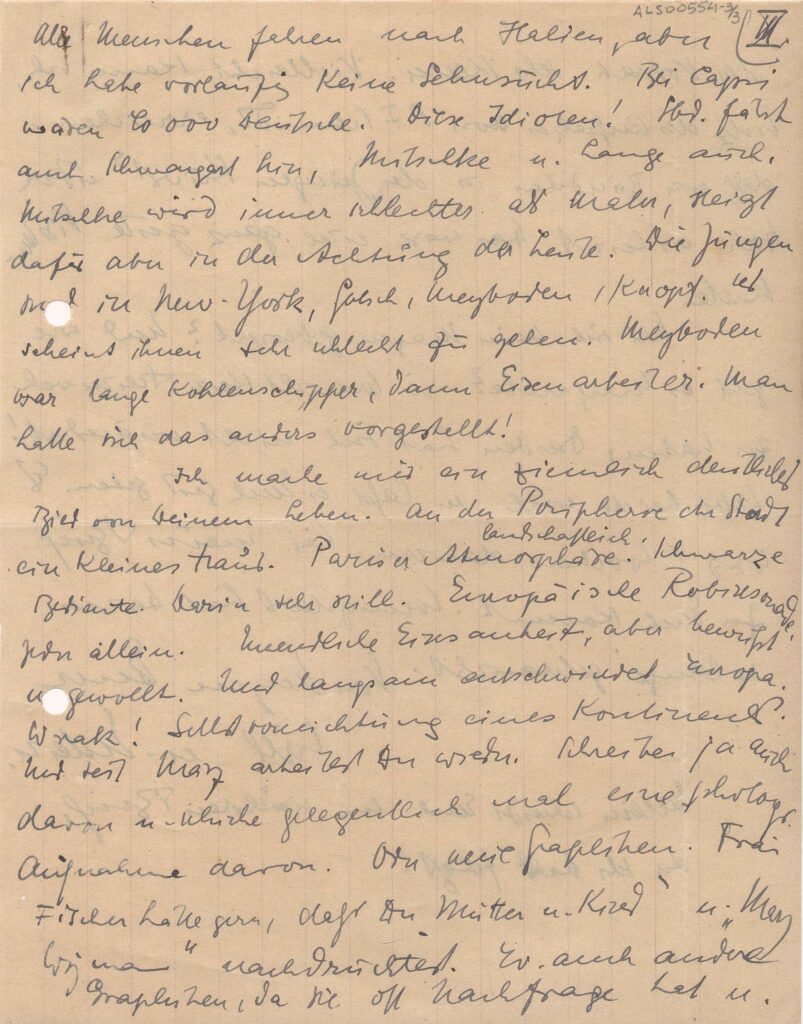 ALS00554-3/3
III
Alle Menschen fahren nach Italien, aber
ich habe vorläufig keine Sehnsucht. Bei Capri
waren 40 000 Deutsche. Diese Idioten! Sbd. fährt
auch Schwangart hin, Nitschke u. Lange auch.
Nitschke wird immer schlechter als Maler, steigt
dafür aber in der Achtung der Leute. Die Jungen
sind in New-York, Meyboden, Knopf. Es
scheint ihnen sehr schlecht zu gehen. Meyboden
war lange Kohlenschipper, dann Eisenarbeiter. Man
hatte sich das anders vorgestellt!
Ich mache mir ein ziemlich deutliches
Bild von Deinem Leben. An der Peripherie der Stadt
ein kleines Haus. Pariser Atmosphäre. landschaftlich. Schwarze
Bediente. Darin sehr still. Europäische Robinsonade,
nur allein. Unendliche Einsamkeit, aber bewusst
u. gewollt. Und langsam entschwindet Europa.
Wrak! Selbstvernichtung eines Kontinents.
Und seit März arbeitest Du wieder. Schreibe ja auch
davon u. schicke gelegentlich mal eine photogr.
Aufnahme davon. Oder neue Graphiken. Frau
Fischer hätte gern, daß Du "Mutter u. Kind" u. "Mary
Wigman" nachdrucktest. Ev. auch andre
Graphiken, da sie oft Nachfrage hat u.